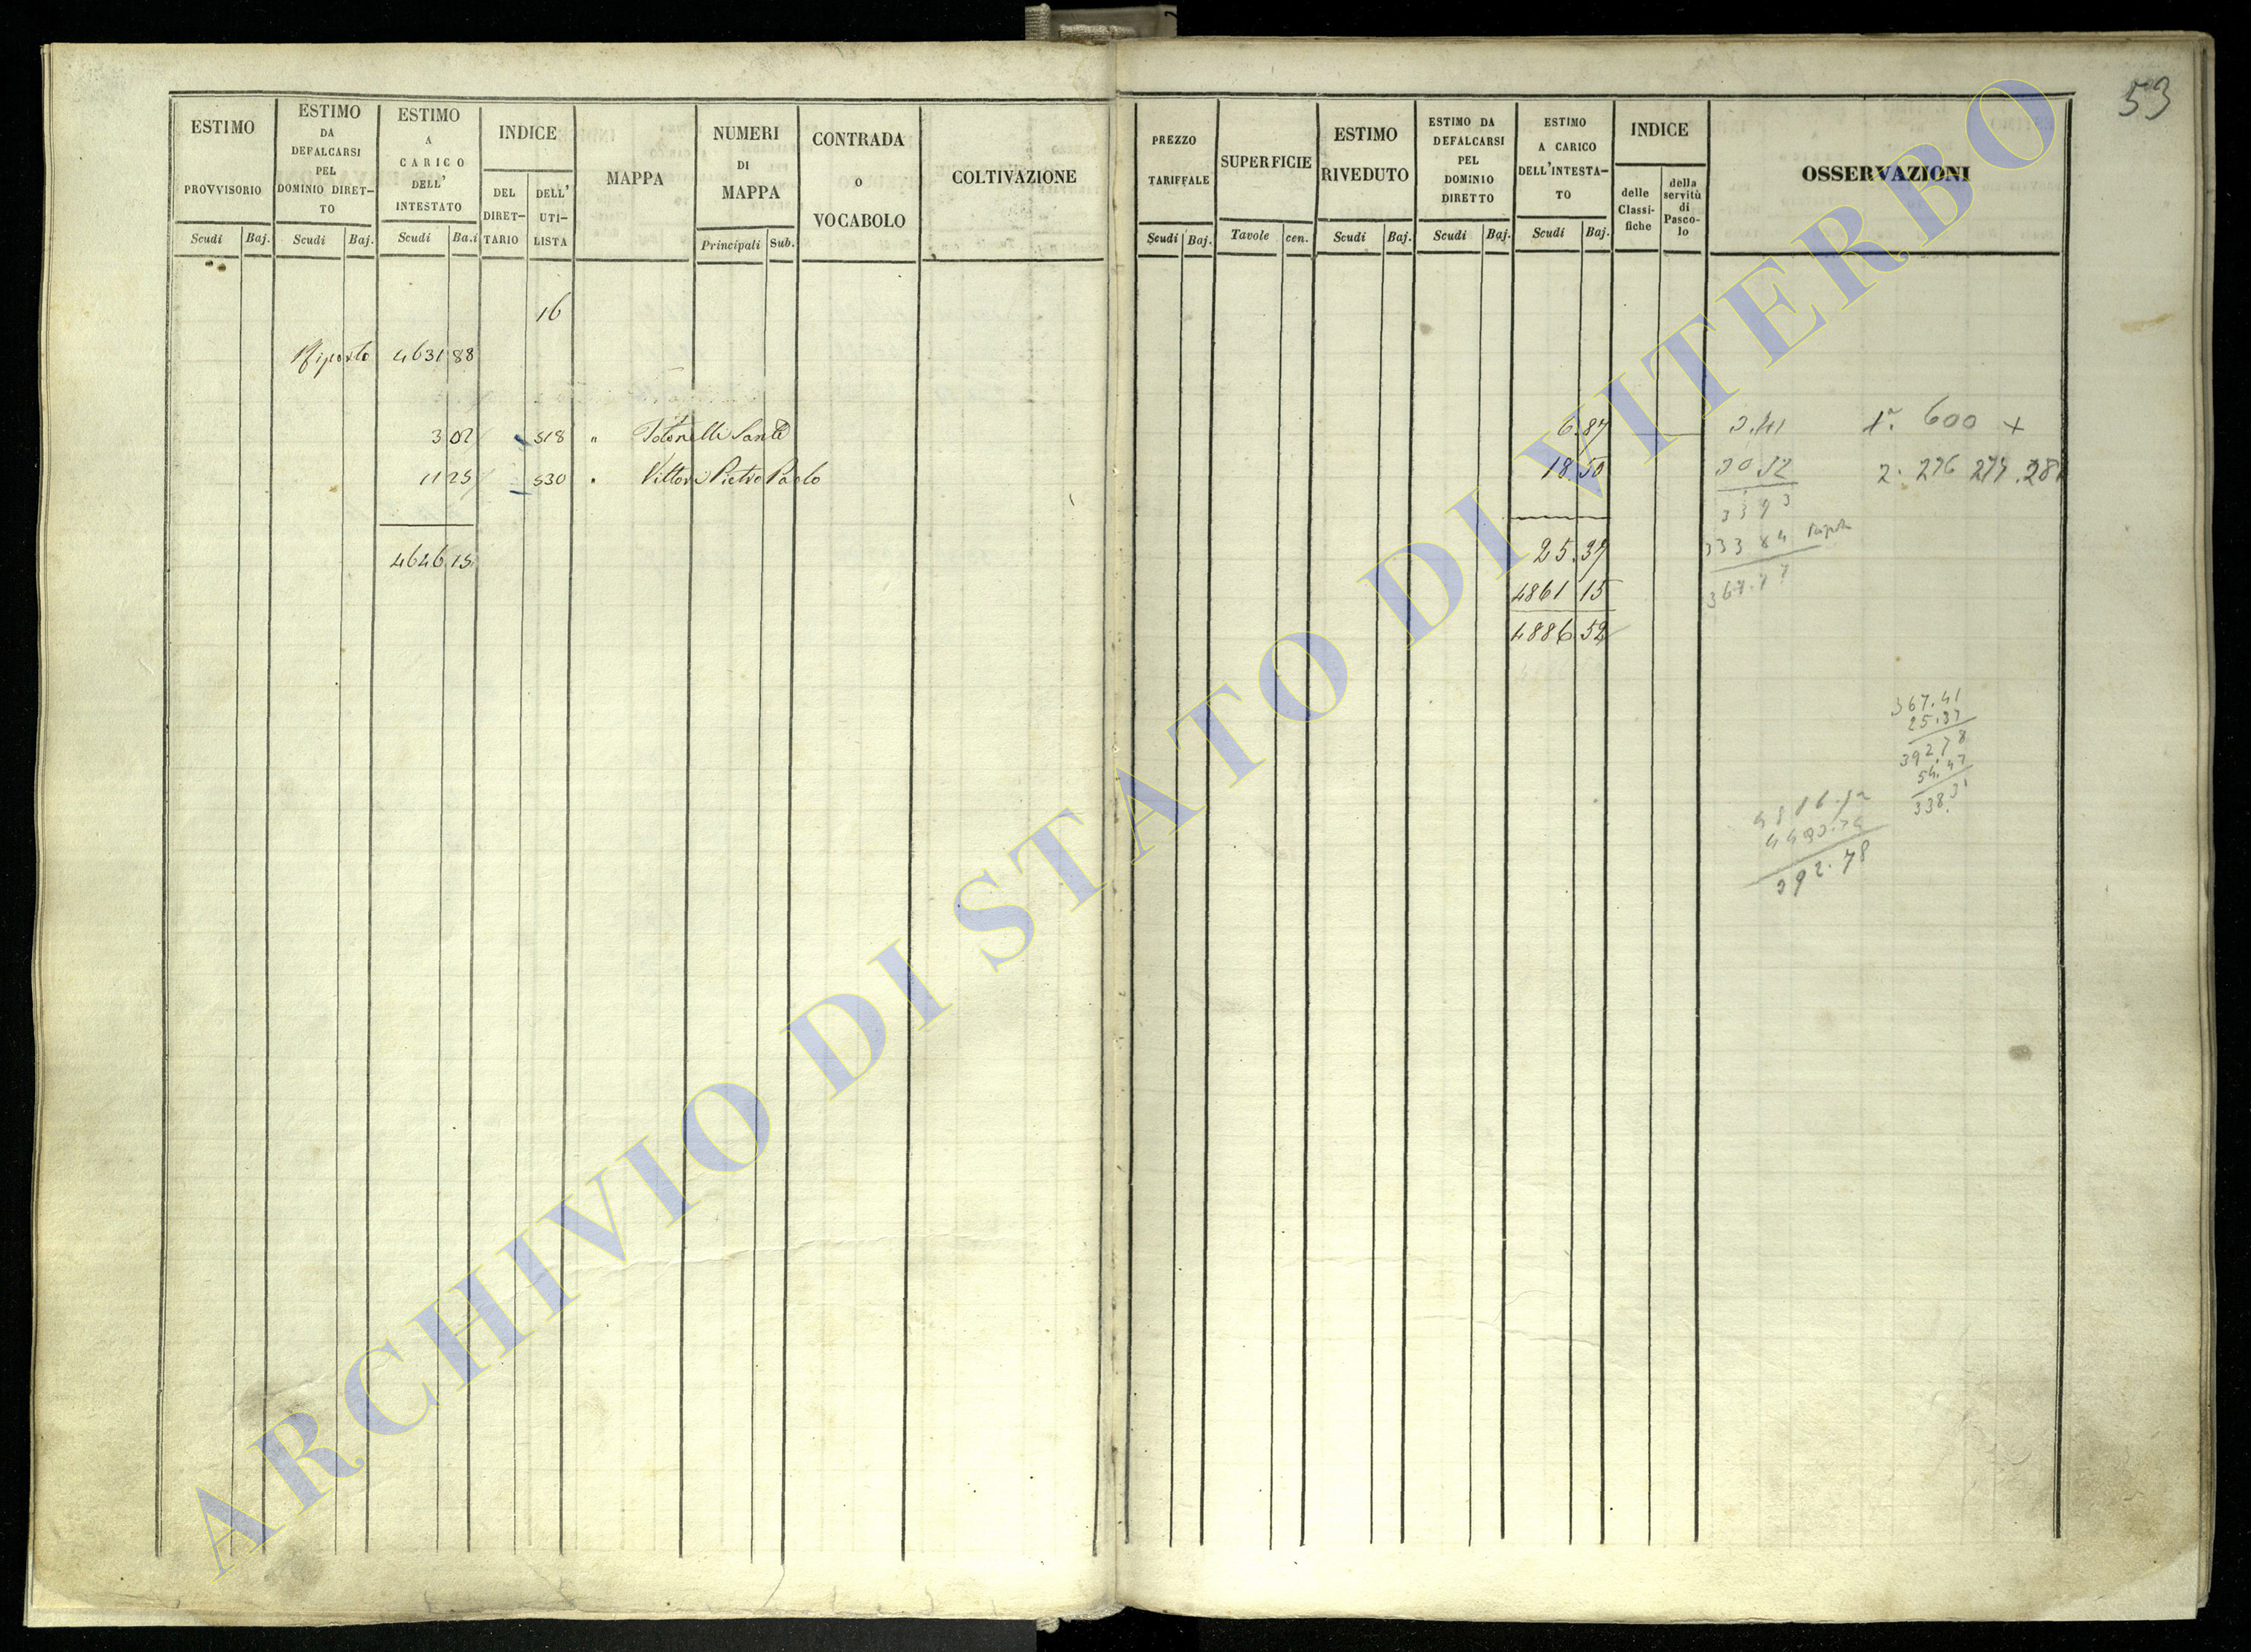 53
ESTIMO PROVVISORIO
Scudi Baj.
ESTIMO DA DEFALCARSI PEL DOMINIO DIRET-TO
Scudi Baj.
ESTIMO A CARICO DELL' INTESTATO
Scudi Ba.i
INDICE
DEL DIRET-TARIO
DELL' UTI-LISTA
MAPPA
NUMERI DI MAPPA
Principali Sub.
CONTRADA O VOCABOLO
COLTIVAZIONE
PREZZO TARIFFALE
Scudi Baj.
SUPERFICIE
Tavole cen.
ESTIMO RIVEDUTO
Scudi Baj.
ESTIMO DA DEFALCARSI PEL DOMINIO DIRETTO
Scudi Baj.
ESTIMO A CARICO DELL'INTESTA-TO
Scudi Baj.
INDICE
delle Classi-fiche
della servitù di Pasco-lo
OSSERVAZIONI
16
Riporto 4631 88
3 02 518 " Santi 6.87
11 25 530 " Vittori Pietro Paolo 18.50
4646 15
25.37
4861 15
4886.52
3.41 1ª. 600 +
30 52 2. 276 279.28
33 93
333 84
367.77
367.41
25.37
392.78
54.47
338.31
4886.52
392.78
ARCHIVIO DI STATO DI VITERBO